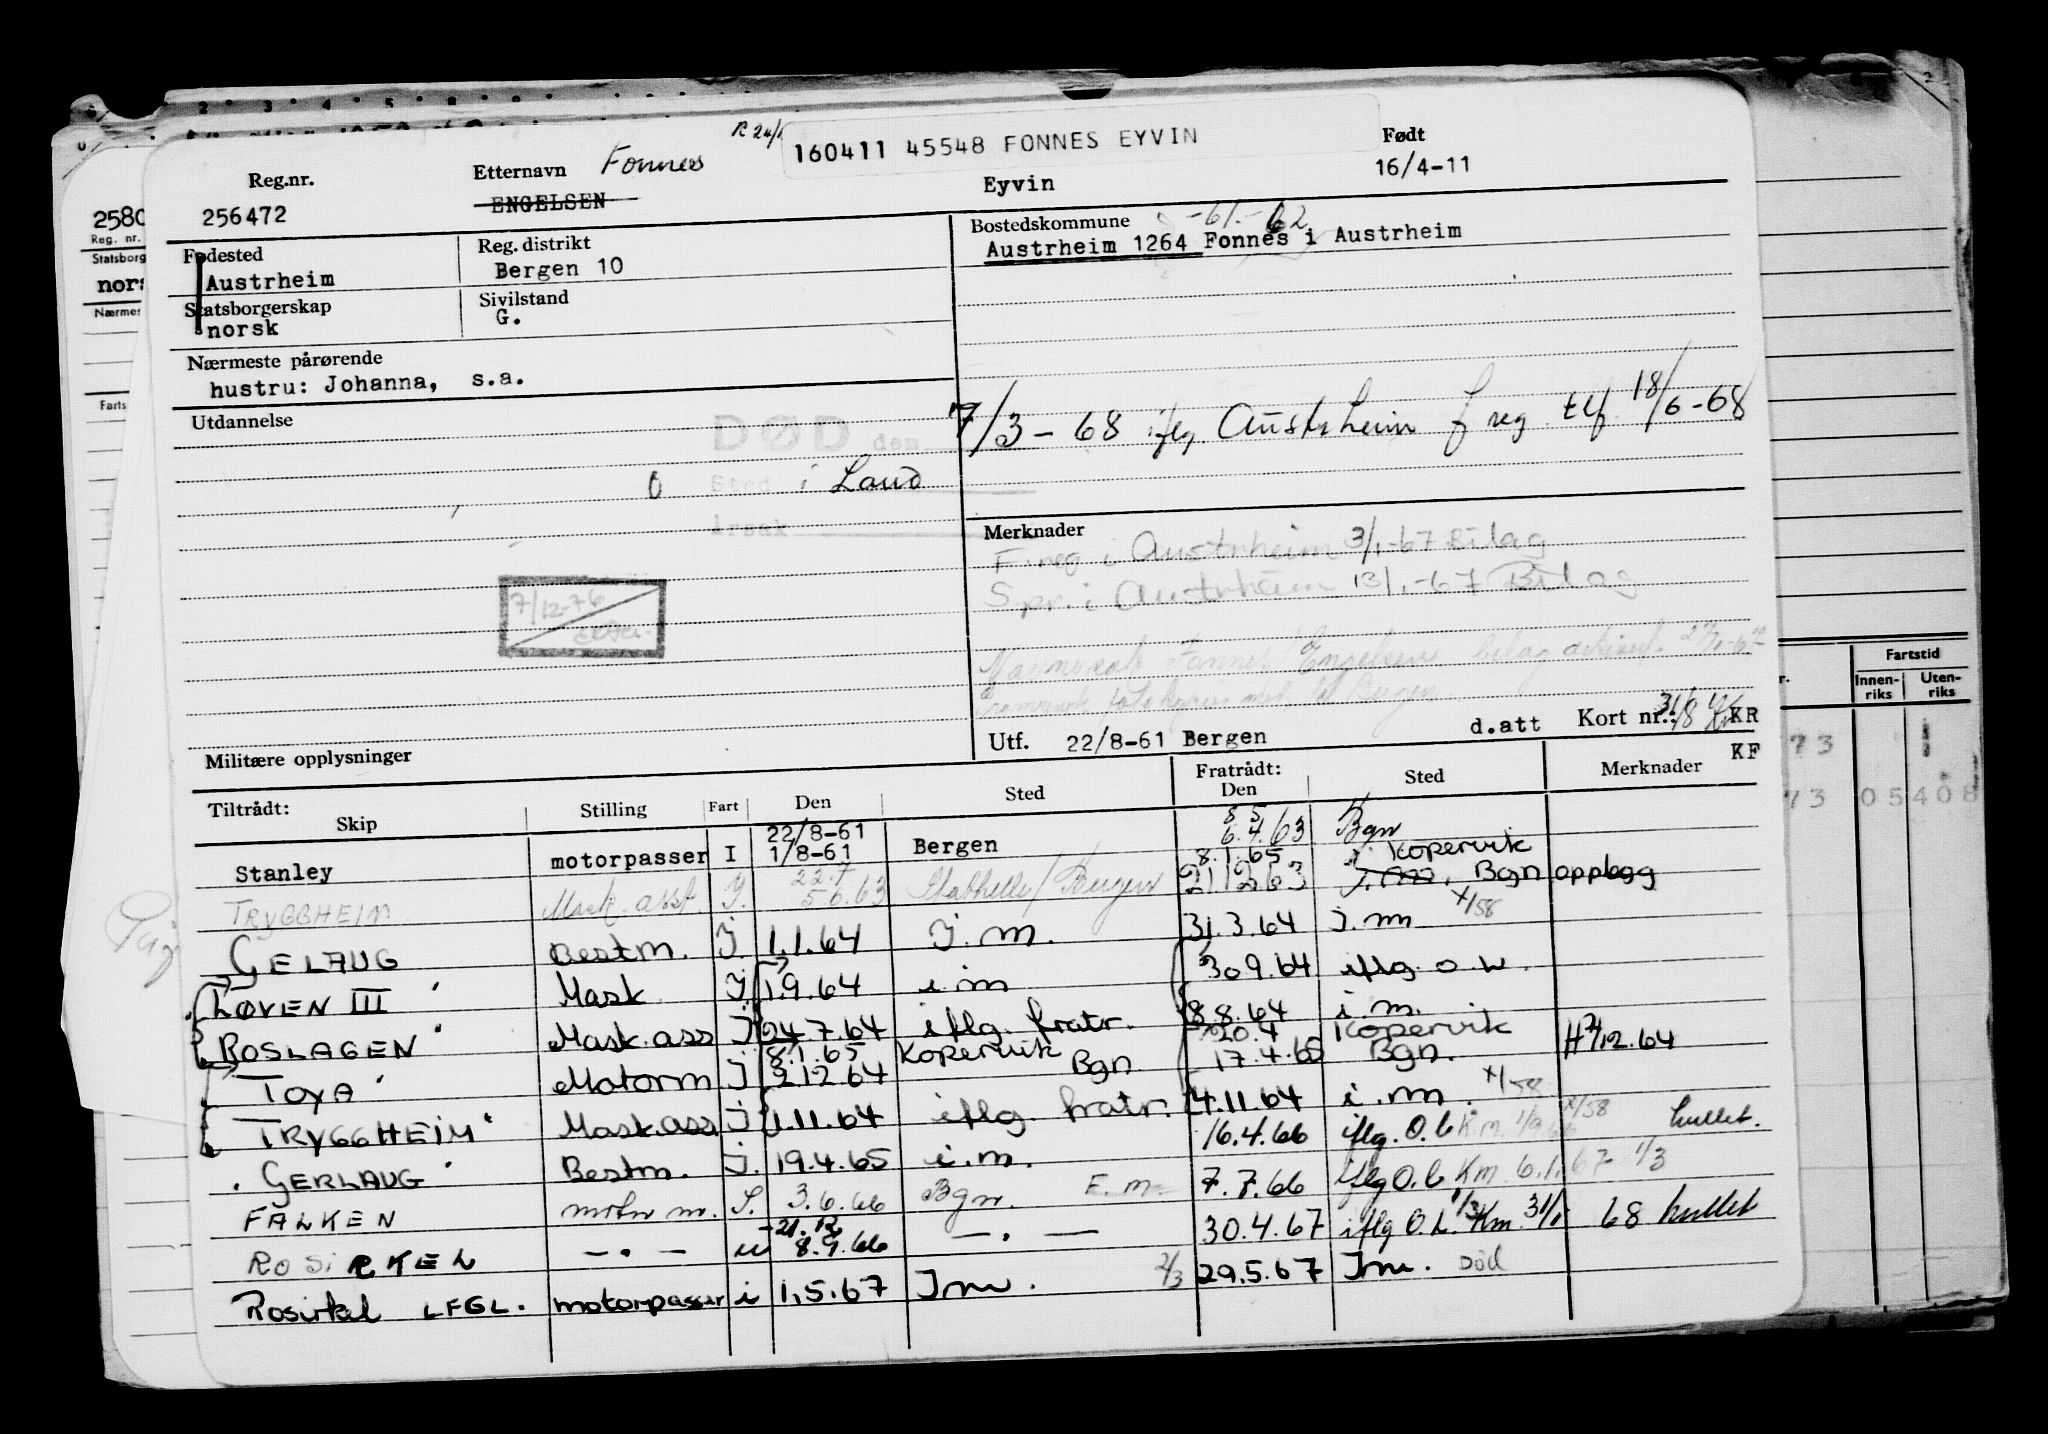 160411 45548 FONNES EYVIN
Reg.nr. Etternavn Fonnes Født
256472 ENGELSEN Eyvin 16/4-11
Fødested Reg. distrikt Bostedskommune -61.-62
Austrheim Bergen 10 Austrheim 1264 Fonnes i Austrheim
Statsborgerskap Sivilstand
norsk G.
Nærmeste pårørende
hustru: Johanna, s.a.
Utdannelse
DØD den 7/3-68 iflg. Austrheim f reg. tlf. 18/6-68
Sted i Land
årsak
Merknader
F.reg i Austrheim 3/1-67 Bilag
S.pr. i Austrheim 13/1-67 Bilag
7/12-76
Utf. 22/8-61 Bergen d.att Kort nr.: KR
KF
Militære opplysninger
Tiltrådt: Fratrådt:
Skip Stilling Fart Den Sted Den Sted Merknader
Stanley motorpasser I 22/8-61 1/8-61 Bergen 8 5 6.4.63 Bgn
TRYGGHEIM Mask. asst. I. 22.7 5.6.63 Stathelle/Bergen 8.1.65 21.12.63 Kopervik Bgn opplegg
GELAUG Bestm. I. 1.1.64 I.m. 31.3.64 I.m x/58
LØVEN III Mask I. 1.9.64 i m 30.9.64 iflg. o.b.
ROSLAGEN Mask.ass I 24.7.64 iflg. fratr. 8.8.64 i m.
TOYA Motorm I 8.1.65 2.12.64 Kopervik Bgn 20.4 17.4.65 Kopervik Bgn. H 2/12.64
TRYGGHEIM Mask.ass I 1.11.64 iflg. fratr. 4.11.64 i.m. x/58
GERLAUG Bestm. I. 19.4.65 i.m. 16.4.66 iflg. O.b K.m. 1/9.66 x/58 hullet.
FALKEN motorm. I. 3.6.66 Bgn. E.m 7.7.66 iflg O.b Km 6.1.67 1/3
ROSIRKEL — . — u 21.12 8.9.66 — . — 30.4.67 iflg O.b. 1/3 Km. 31/1 68 hullet
Rosirkel LFGL. motorpasser i 1.5.67 Im. 2/3 29.5.67 Im. Død
2580
Reg. nr.
Statsborg
nors
Nærmes
Farts
Fartstid
Innen-riks Uten-riks
73
73 05408